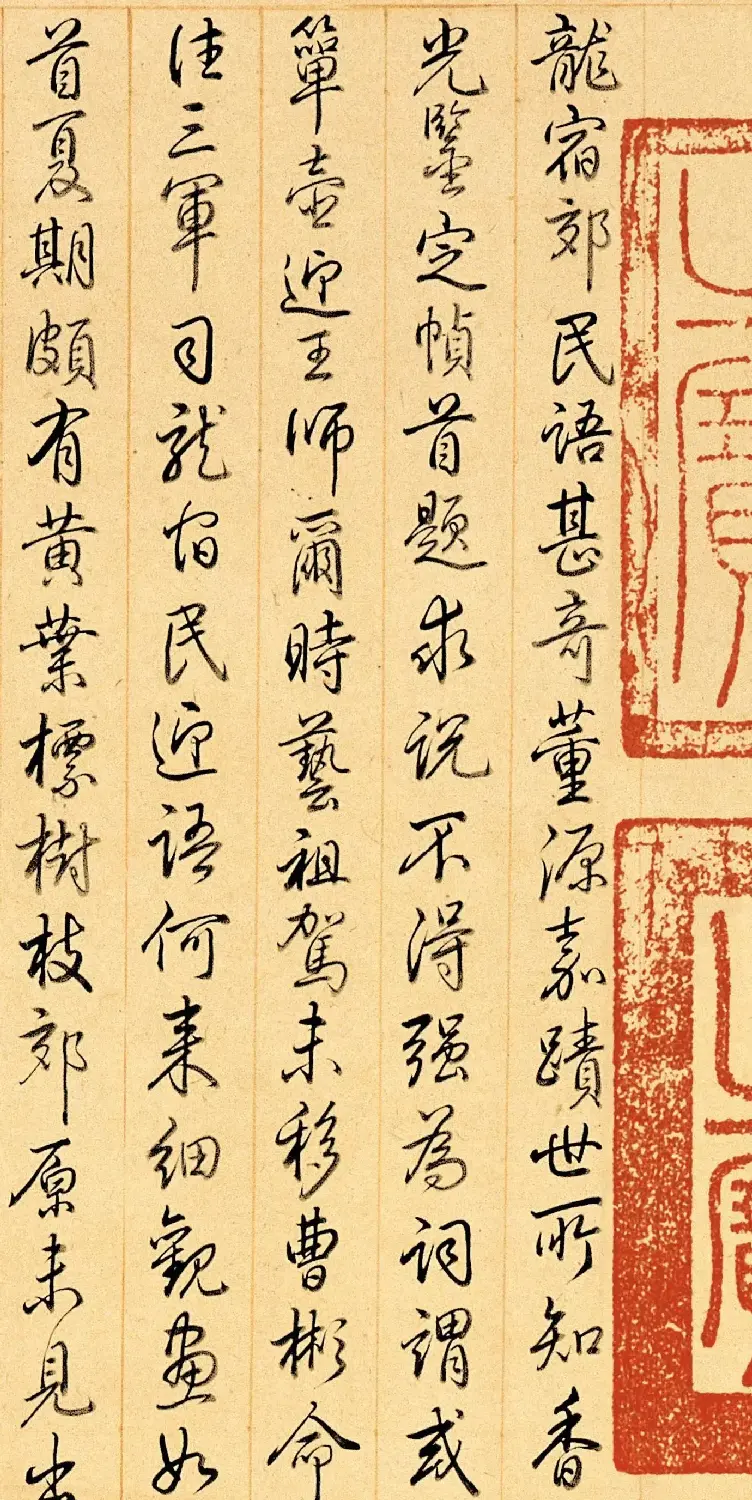 龍宿郊民語甚奇董源嘉蹟世所知香
光鑒定幀首題求説不得强為詞謂或
簞壺迎王師爾時藝祖駕未移曹彬命
往三軍司龍宿民迎語何來細觀畫如
首夏期頗有黄葉標樹枝郊原未見出